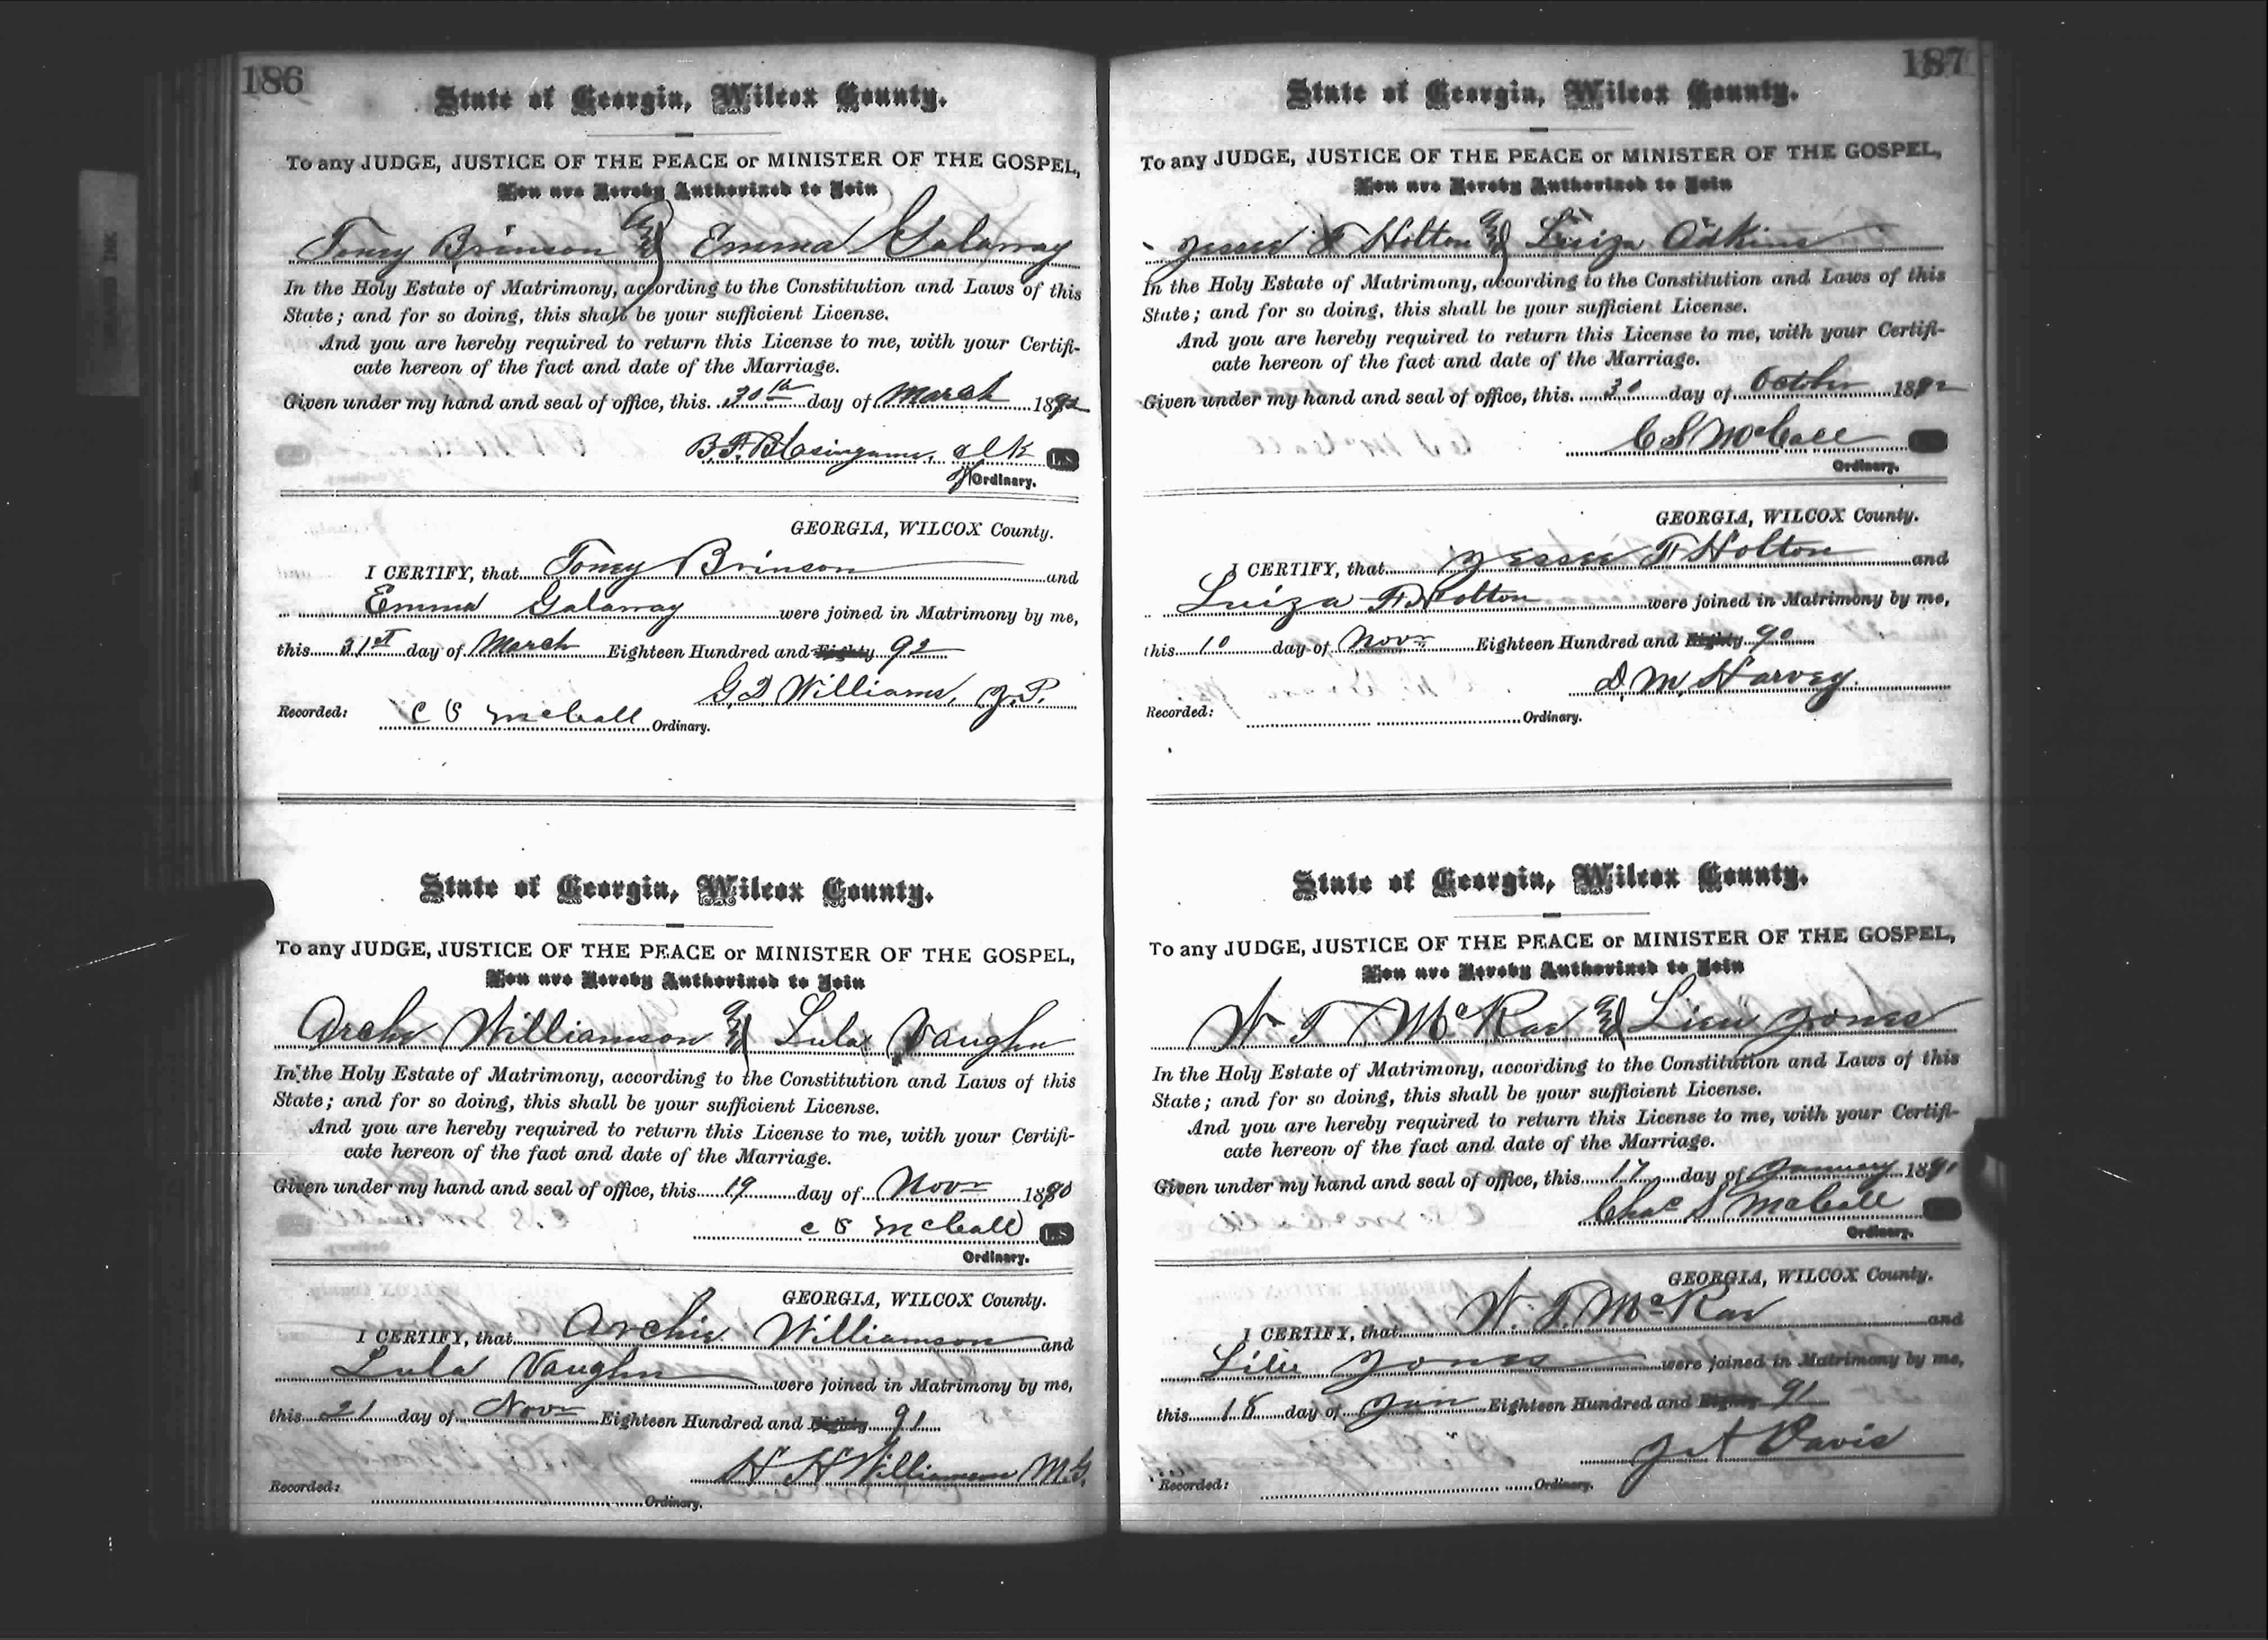 186
State of Georgia, Wilcox County.
To any JUDGE, JUSTICE OF THE PEACE or MINISTER OF THE GOSPEL,
You are Hereby Authorized to Join
Toney Brinson & Emma Galaway
In the Holy Estate of Matrimony, according to the Constitution and Laws of this
State; and for so doing, this shall be your sufficient License.
And you are hereby required to return this License to me, with your Certifi-
cate hereon of the fact and date of the Marriage.
Given under my hand and seal of office, this 30th day of March 1892
B. F. Blasingame, clk
Ordinary.
GEORGIA, WILCOX County.
I CERTIFY, that Toney Brinson and
Emma Galaway were joined in Matrimony by me,
this 31st day of March Eighteen Hundred and Eighty 92
Williams, J.P.
Recorded: C S McCall Ordinary.
State of Georgia, Wilcox County.
To any JUDGE, JUSTICE OF THE PEACE or MINISTER OF THE GOSPEL,
You are Hereby Authorized to Join
Archie Williamson & Lula Vaughn
In the Holy Estate of Matrimony, according to the Constitution and Laws of this
State; and for so doing, this shall be your sufficient License.
And you are hereby required to return this License to me, with your Certifi-
cate hereon of the fact and date of the Marriage.
Given under my hand and seal of office, this 19 day of Novr 1890
C S McCall L.S
Ordinary.
GEORGIA, WILCOX County.
I CERTIFY, that Archie Williamson and
Lula Vaughn were joined in Matrimony by me,
this 21 day of Novr Eighteen Hundred and Eighty 91
H H Williamson M.G.
Recorded: Ordinary.
187
State of Georgia, Wilcox County.
To any JUDGE, JUSTICE OF THE PEACE or MINISTER OF THE GOSPEL,
You are Hereby Authorized to Join
Jessee F Holton & Luiza Adkins
In the Holy Estate of Matrimony, according to the Constitution and Laws of this
State; and for so doing, this shall be your sufficient License.
And you are hereby required to return this License to me, with your Certifi-
cate hereon of the fact and date of the Marriage.
Given under my hand and seal of office, this 30 day of October
C S McCall
Ordinary.
GEORGIA, WILCOX County.
I CERTIFY, that Jessee F Holton and
Luiza Holton were joined in Matrimony by me,
this 10 day of Novr Eighteen Hundred and Eighty 90
D. M. Harvey
Recorded: Ordinary.
State of Georgia, Wilcox County.
To any JUDGE, JUSTICE OF THE PEACE or MINISTER OF THE GOSPEL,
You are Hereby Authorized to Join
W T McRae & Lieu Jones
In the Holy Estate of Matrimony, according to the Constitution and Laws of this
State; and for so doing, this shall be your sufficient License.
And you are hereby required to return this License to me, with your Certifi-
cate hereon of the fact and date of the Marriage.
Given under my hand and seal of office, this 17 day of January 1891
Chas S McCall
Ordinary.
GEORGIA, WILCOX County.
I CERTIFY, that W. T. McRae and
Jones were joined in Matrimony by me,
this 18 day of Jan Eighteen Hundred and Eighty 91
J A Davis
Recorded: Ordinary.